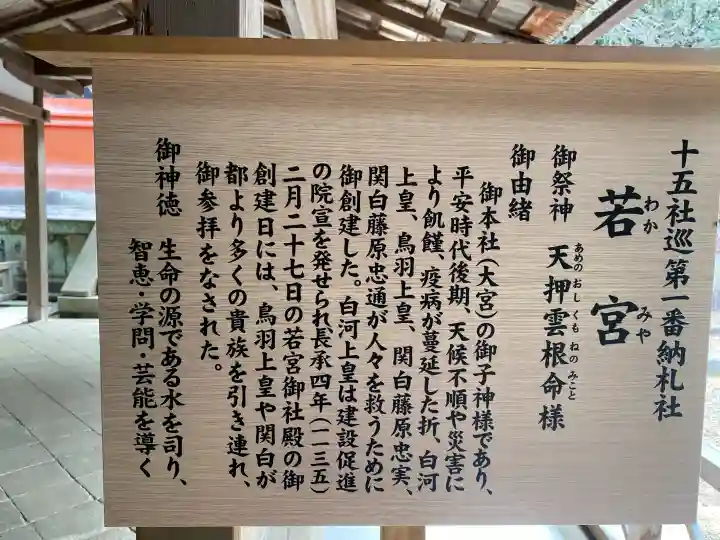 十五社巡第一番納札社
若宮
わかみや
御祭神 天押雲根命様
あめのおしくもねのみこと
御由緒
御本社（大宮）の御子神様であり、
平安時代後期、天候不順や災害に
より飢饉、疫病が蔓延した折、白河
上皇、鳥羽上皇、関白藤原忠実、
関白藤原忠通が人々を救うために
御創建した。白河上皇は建設促進
の院宣を発せられ長承四年（一一三五）
二月二十七日の若宮御社殿の御
創建日には、鳥羽上皇や関白が
都より多くの貴族を引き連れ、
御参拝をなされた。
御神徳 生命の源である水を司り、
智恵・学問・芸能を導く